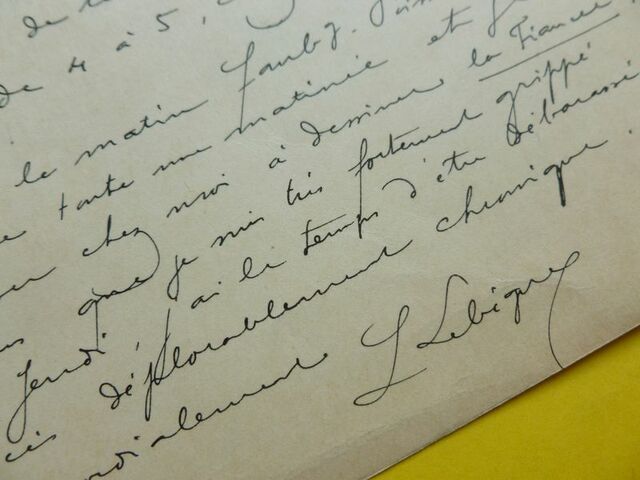 de
de 4 à 5,
le matin Faubg.
toute une matinée et
chez moi à dessiner la Fiancée
que je suis très fortement grippé
Jeudi, j'ai le temps d'être débarassé
déplorablement chronique.
cordialement L Lebègue